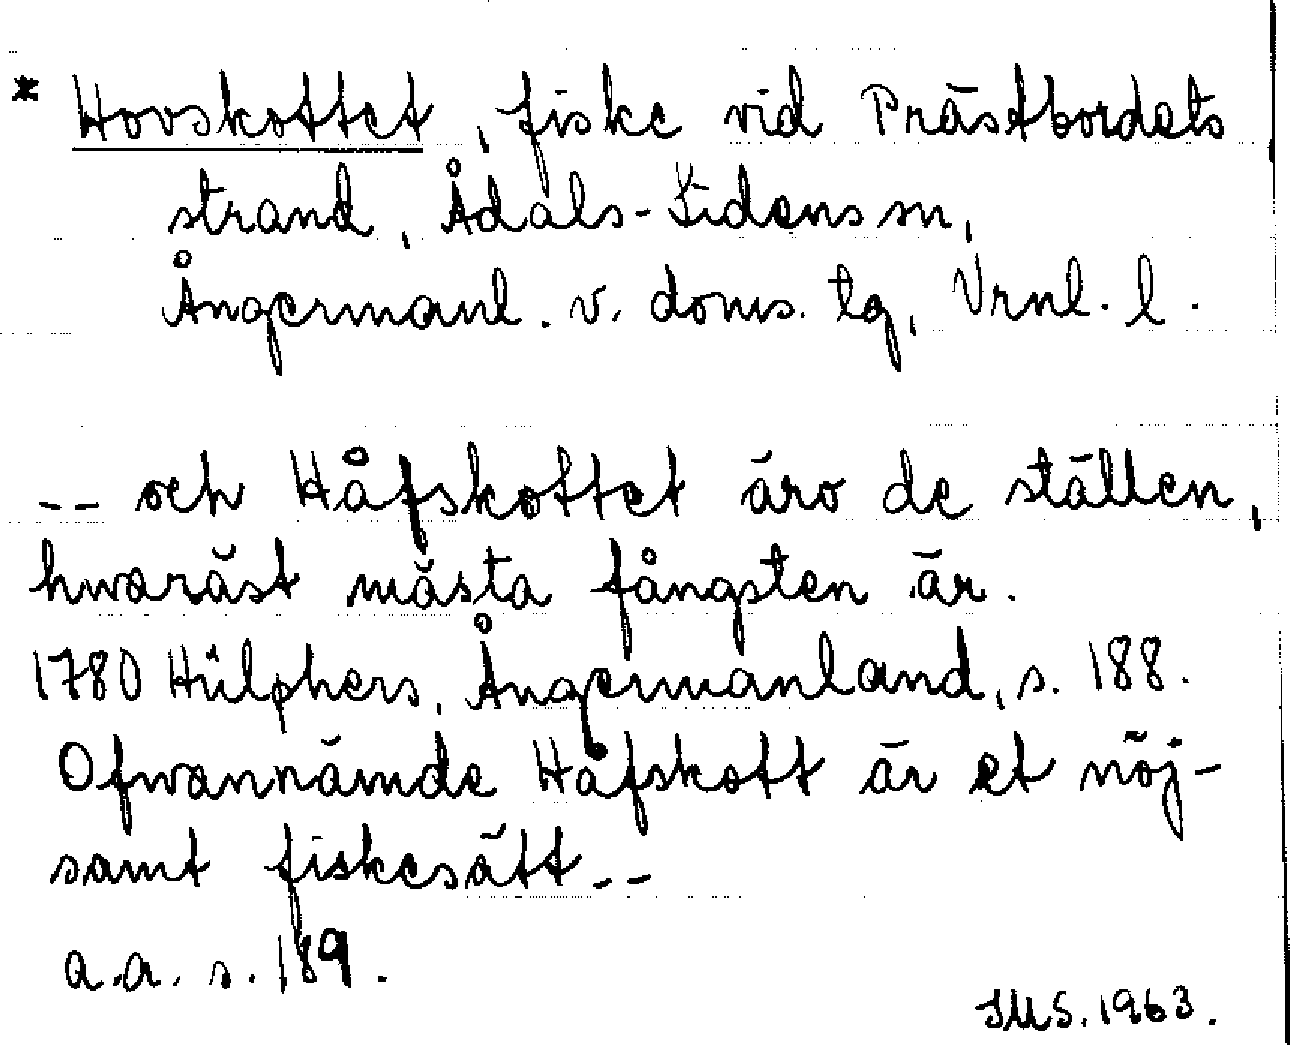 * Hovskottet, fiske vid Prästbordets
strand, Ådals-Lidens sn,
Ångermanl. v. doms. tg, Vrnl. l.
-- och Håfskottet äro de ställen,
hwaräst mästa fångsten är.
1780 Hülphers, Ångermanland, s. 188.
Ofwannämde Håfskott är et nöj-
samt fiskesätt--
a.a. s. 189.
IMS. 1963.